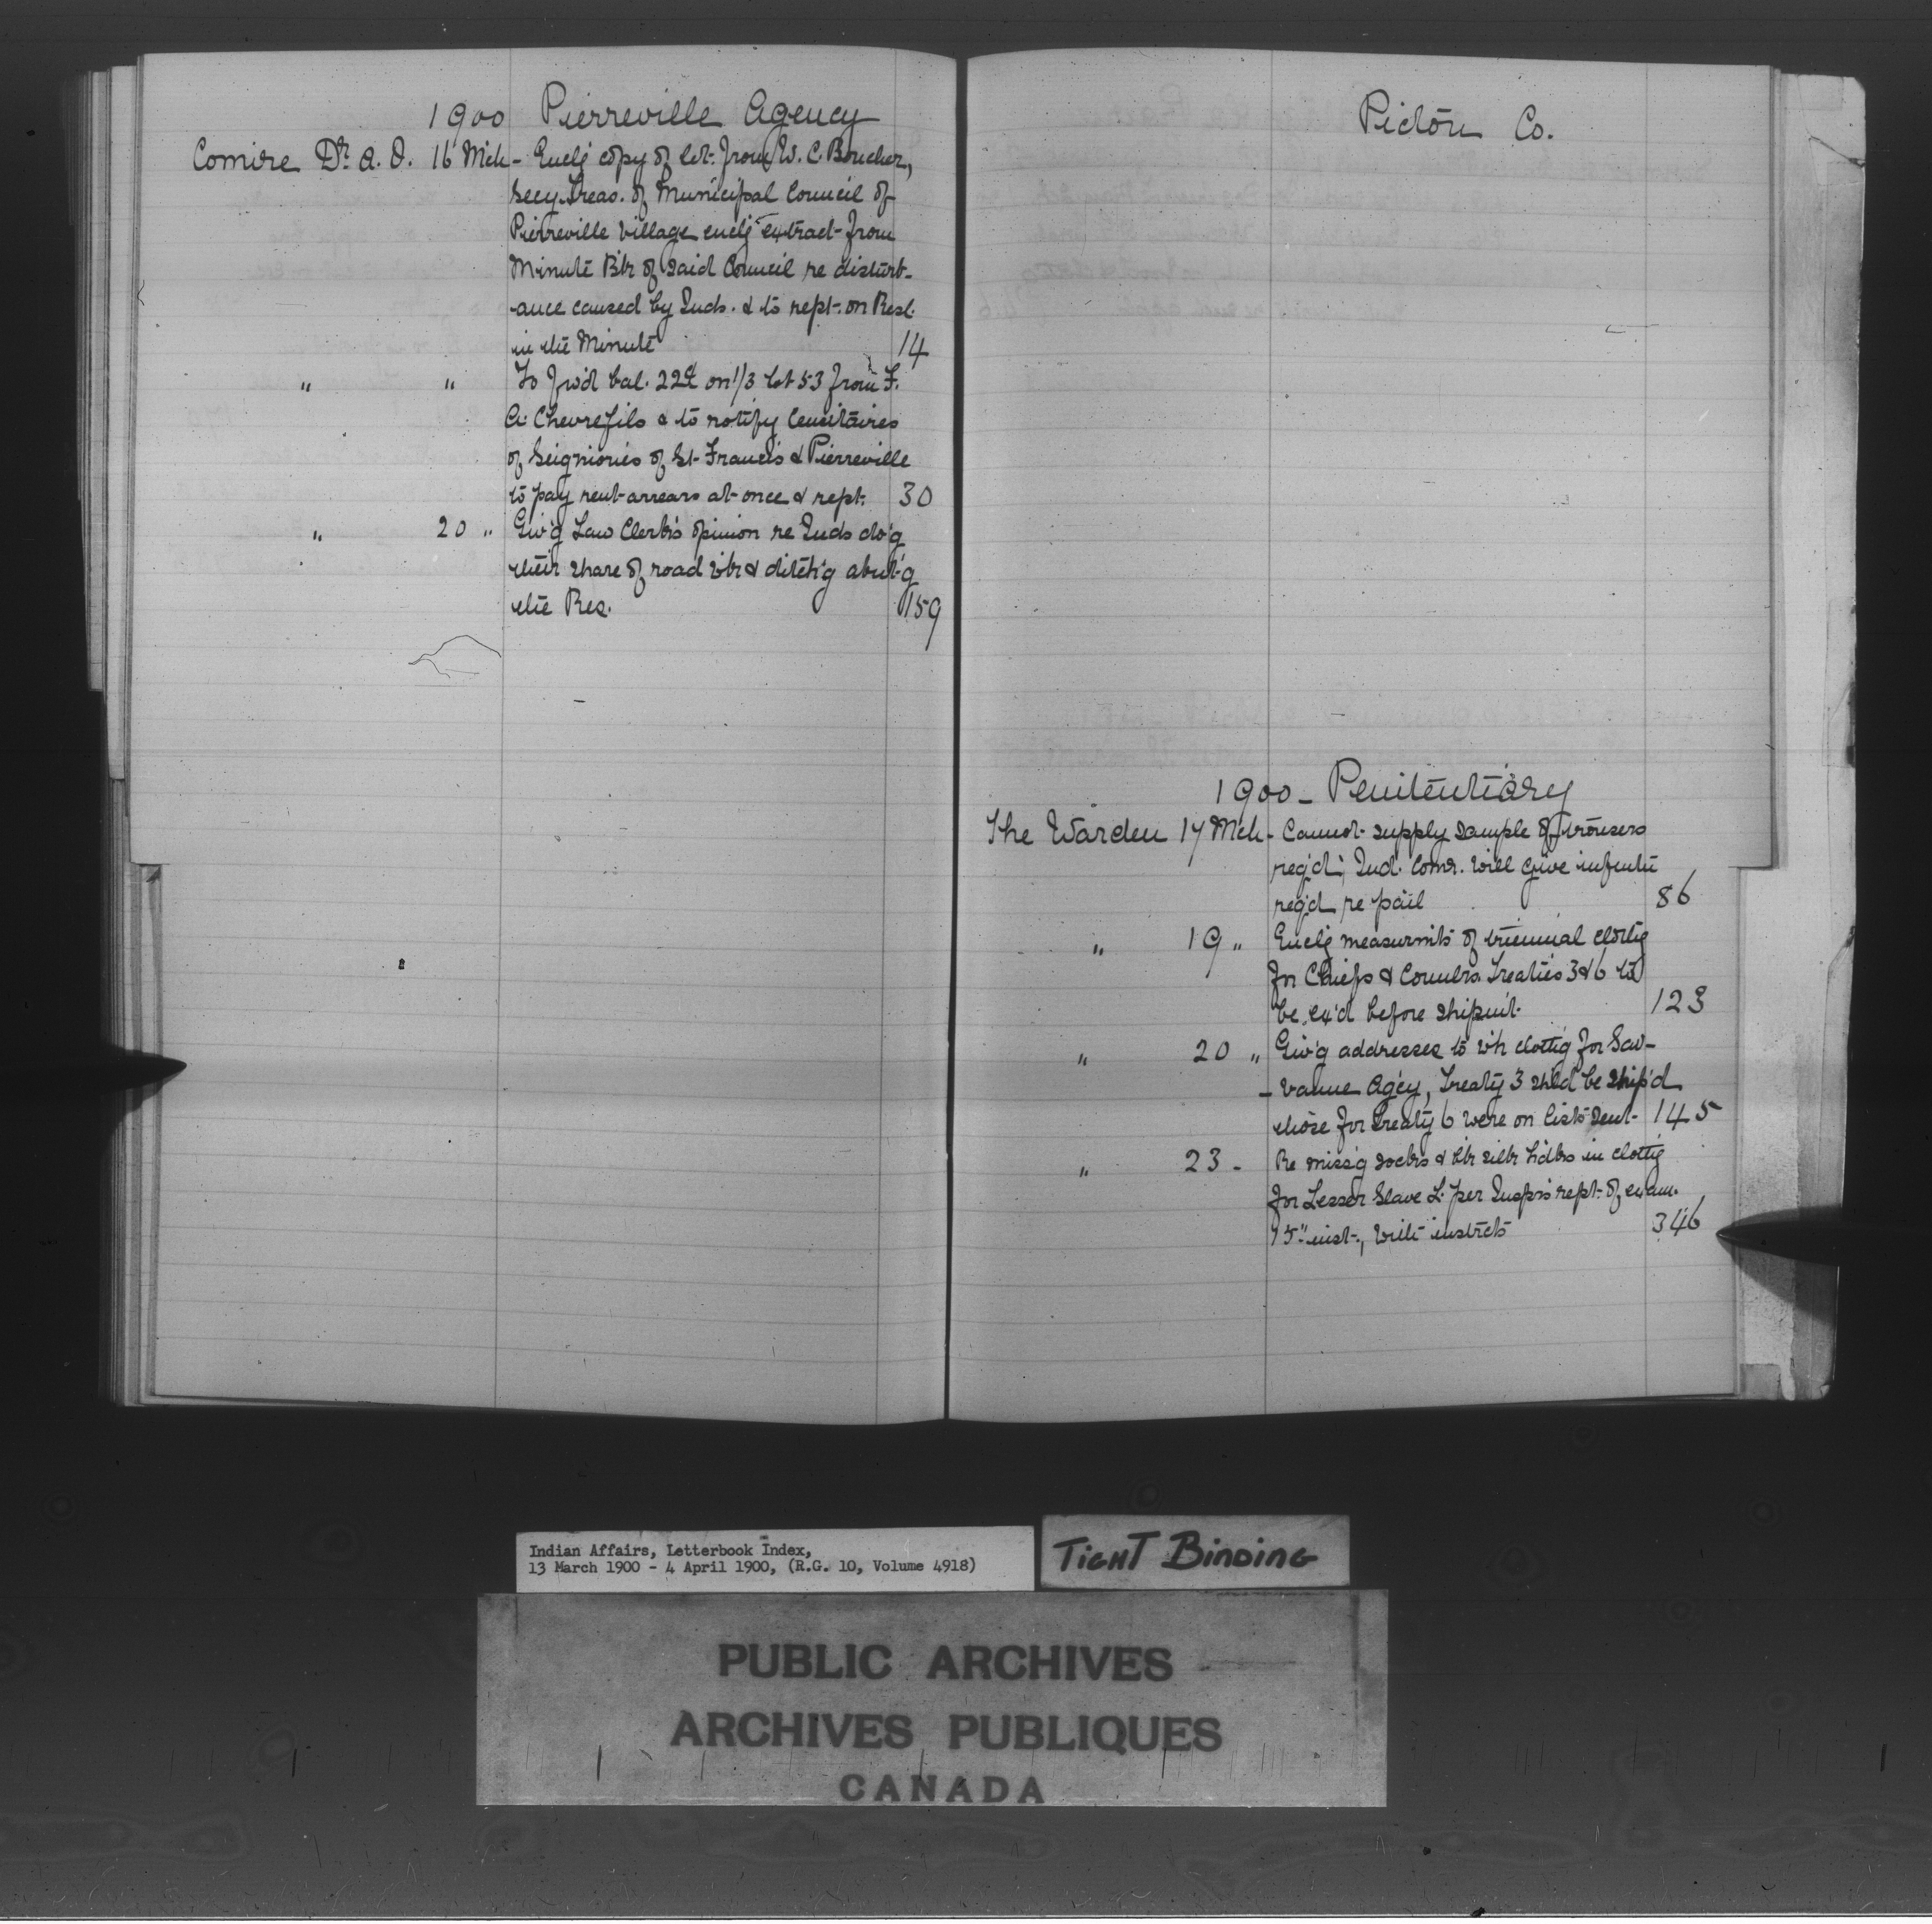 1900 Pierreville Agency
Comire Dr. A. O. 16 Mch - Encl'g copy of let. from W. C. Boucher,
Secy. Treas. of Municipal Council of
Pierreville Village encl'g extract from
Minute Bk of said Council re disturb-
ance caused by Inds. & to rept. on Resl.
in the Minute 14
" " To fwd bal. 22¢ on 1/3 lot 53 from F.
A. Chevrefils & to notify Censitaires
of Seigniories of St. Francis & Pierreville
to pay rent arrears at once & rept. 30
" 20 " Giv'g Law Clerk's opinion re Inds do'g
their share of road wk & ditch'g abut'g
the Res. 159
Pictou Co.
1900 - Penitentiary
The Warden 17 Mch - Cannot supply sample of trousers
req'd; Ind. Comr. will give
req'd re pail 86
" 19 " Encl'g measurm'ts of triennial cloth'g
for Chiefs & Counclrs. Treaties 3 & 6 to
be ex'd before shipm't. 123
" 20 " Giv'g addresses to wh cloth'g for Sav-
- vanne Ag'cy, Treaty 3 shld be ship'd
those for Treaty 6 were on lists sent 145
" 23 - Re miss'g socks & blk silk h'dks in cloth'g
for Lesser Slave L. per Insp's rept. of exam.
15" inst., with instrcts 346
Indian Affairs, Letterbook Index,
13 March 1900 - 4 April 1900, (R.G. 10, Volume 4918)
TIGHT BINDING
PUBLIC ARCHIVES
ARCHIVES PUBLIQUES
CANADA